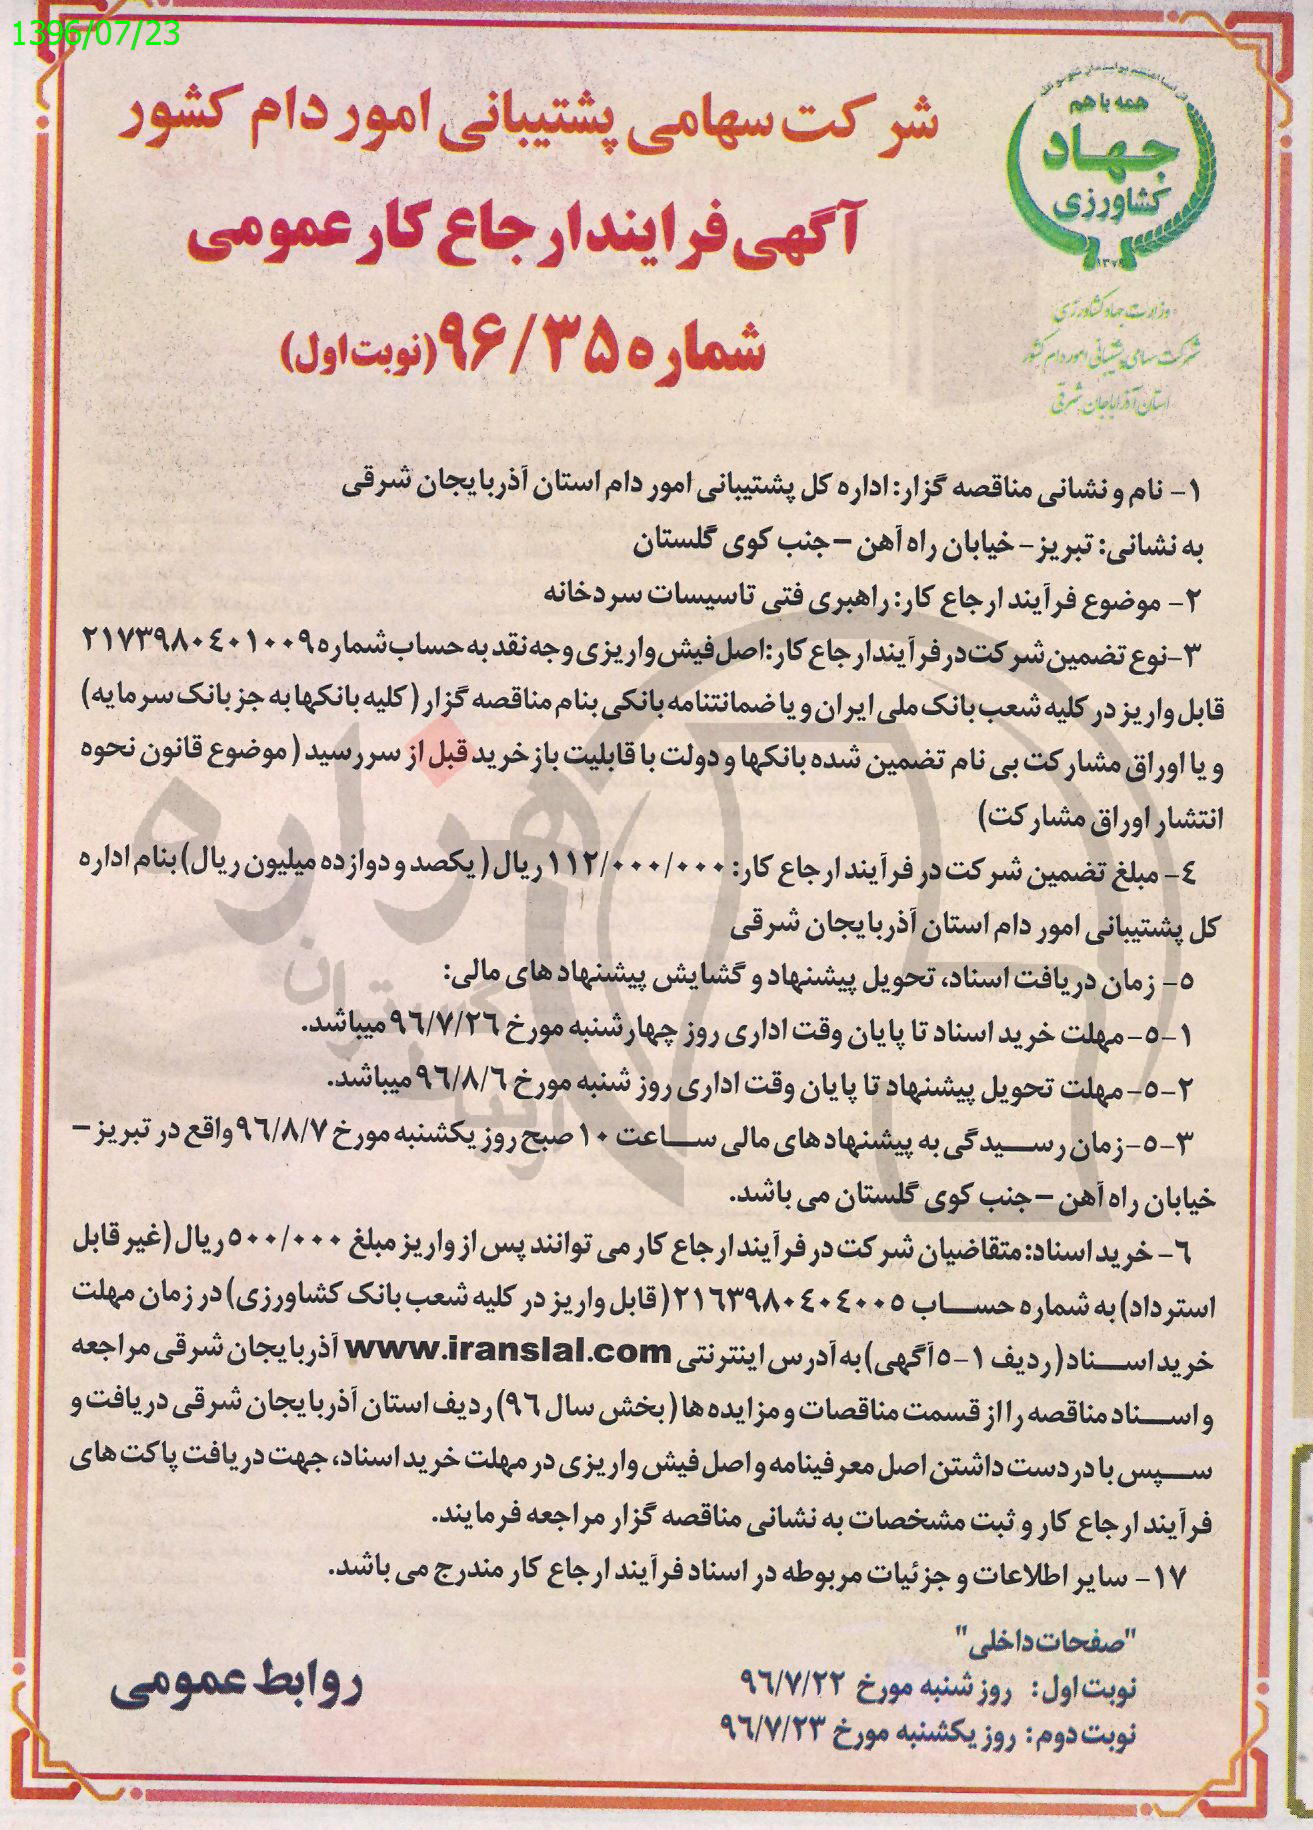 1396/07/23
همه با هم
جهاد
کشاورزی
وزارت جهاد کشاورزی
شرکت سهامی پشتیبانی امور دام کشور
استان آذربایجان شرقی
شرکت سهامی پشتیبانی امور دام کشور
آگهی فرایند ارجاع کار عمومی
شماره ۹۶/۳۵ (نوبت اول)
۱- نام و نشانی مناقصه گزار: اداره کل پشتیبانی امور دام استان آذربایجان شرقی
به نشانی: تبریز- خیابان راه آهن – جنب کوی گلستان
۲- موضوع فرآیند ارجاع کار: راهبری فتی تاسیسات سردخانه
۳-نوع تضمین شرکت در فرآیند ارجاع کار: اصل فیش واریزی وجه نقد به حساب شماره ۲۱۷۳۹۸۰۴۰۱۰۰۹
قابل واریز در کلیه شعب بانک ملی ایران و یا ضمانتنامه بانکی بنام مناقصه گزار (کلیه بانکها به جز بانک سرمایه)
و یا اوراق مشارکت بی نام تضمین شده بانکها و دولت با قابلیت باز خرید قبل از سررسید (موضوع قانون نحوه
انتشار اوراق مشارکت)
۴- مبلغ تضمین شرکت در فرآیند ارجاع کار: ۱۱۲/۰۰۰/۰۰۰ ریال (یکصد و دوازده میلیون ریال) بنام اداره
کل پشتیبانی امور دام استان آذربایجان شرقی
۵- زمان دریافت اسناد، تحویل پیشنهاد و گشایش پیشنهاد های مالی:
۱-۵- مهلت خرید اسناد تا پایان وقت اداری روز چهارشنبه مورخ ۹۶/۷/۲۶ میباشد.
۲-۵- مهلت تحویل پیشنهاد تا پایان وقت اداری روز شنبه مورخ ۹۶/۸/۶ میباشد.
۳-۵- زمان رسیدگی به پیشنهادهای مالی ساعت ۱۰ صبح روز یکشنبه مورخ ۹۶/۸/۷ واقع در تبریز –
خیابان راه آهن – جنب کوی گلستان می باشد.
۶- خرید اسناد: متقاضیان شرکت در فرآیند ارجاع کار می توانند پس از واریز مبلغ ۵۰۰/۰۰۰ ریال (غیر قابل
استرداد) به شماره حساب ۲۱۶۳۹۸۰۴۰۴۰۰۵ (قابل واریز در کلیه شعب بانک کشاورزی) در زمان مهلت
خرید اسناد (ردیف ۱-۵ آگهی) به آدرس اینترنتی www.iranslal.com آذربایجان شرقی مراجعه
و اسناد مناقصه را از قسمت مناقصات و مزایده ها (بخش سال ۹۶) ردیف استان آذربایجان شرقی دریافت و
سپس با در دست داشتن اصل معرفینامه و اصل فیش واریزی در مهلت خرید اسناد، جهت دریافت پاکت های
فرآیند ارجاع کار و ثبت مشخصات به نشانی مناقصه گزار مراجعه فرمایند.
۱۷- سایر اطلاعات و جزئیات مربوطه در اسناد فرآیند ارجاع کار مندرج می باشد.
"صفحات داخلی"
نوبت اول: روز شنبه مورخ ۹۶/۷/۲۲
نوبت دوم: روز یکشنبه مورخ ۹۶/۷/۲۳
روابط عمومی
هزاره